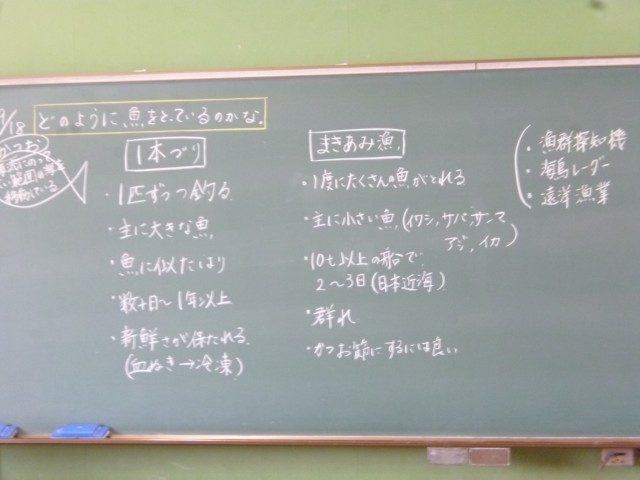 9/18
どのように、魚をとっているのかな。
かつお
移動している
1本づり
・1匹ずつ釣る
・主に大きな魚
・魚に似たはり
・数十日～1年以上
・新鮮さが保たれる
(血ぬき→冷凍)
まきあみ漁
・1度にたくさんの魚がとれる
・主に小さい魚(イワシ,サバ,サンマ
アジ,イカ)
・10t以上の船で
2～3日(日本近海)
・群れ
・かつお節にするには良い
・魚群探知機
・海鳥レーダー
・遠洋漁業